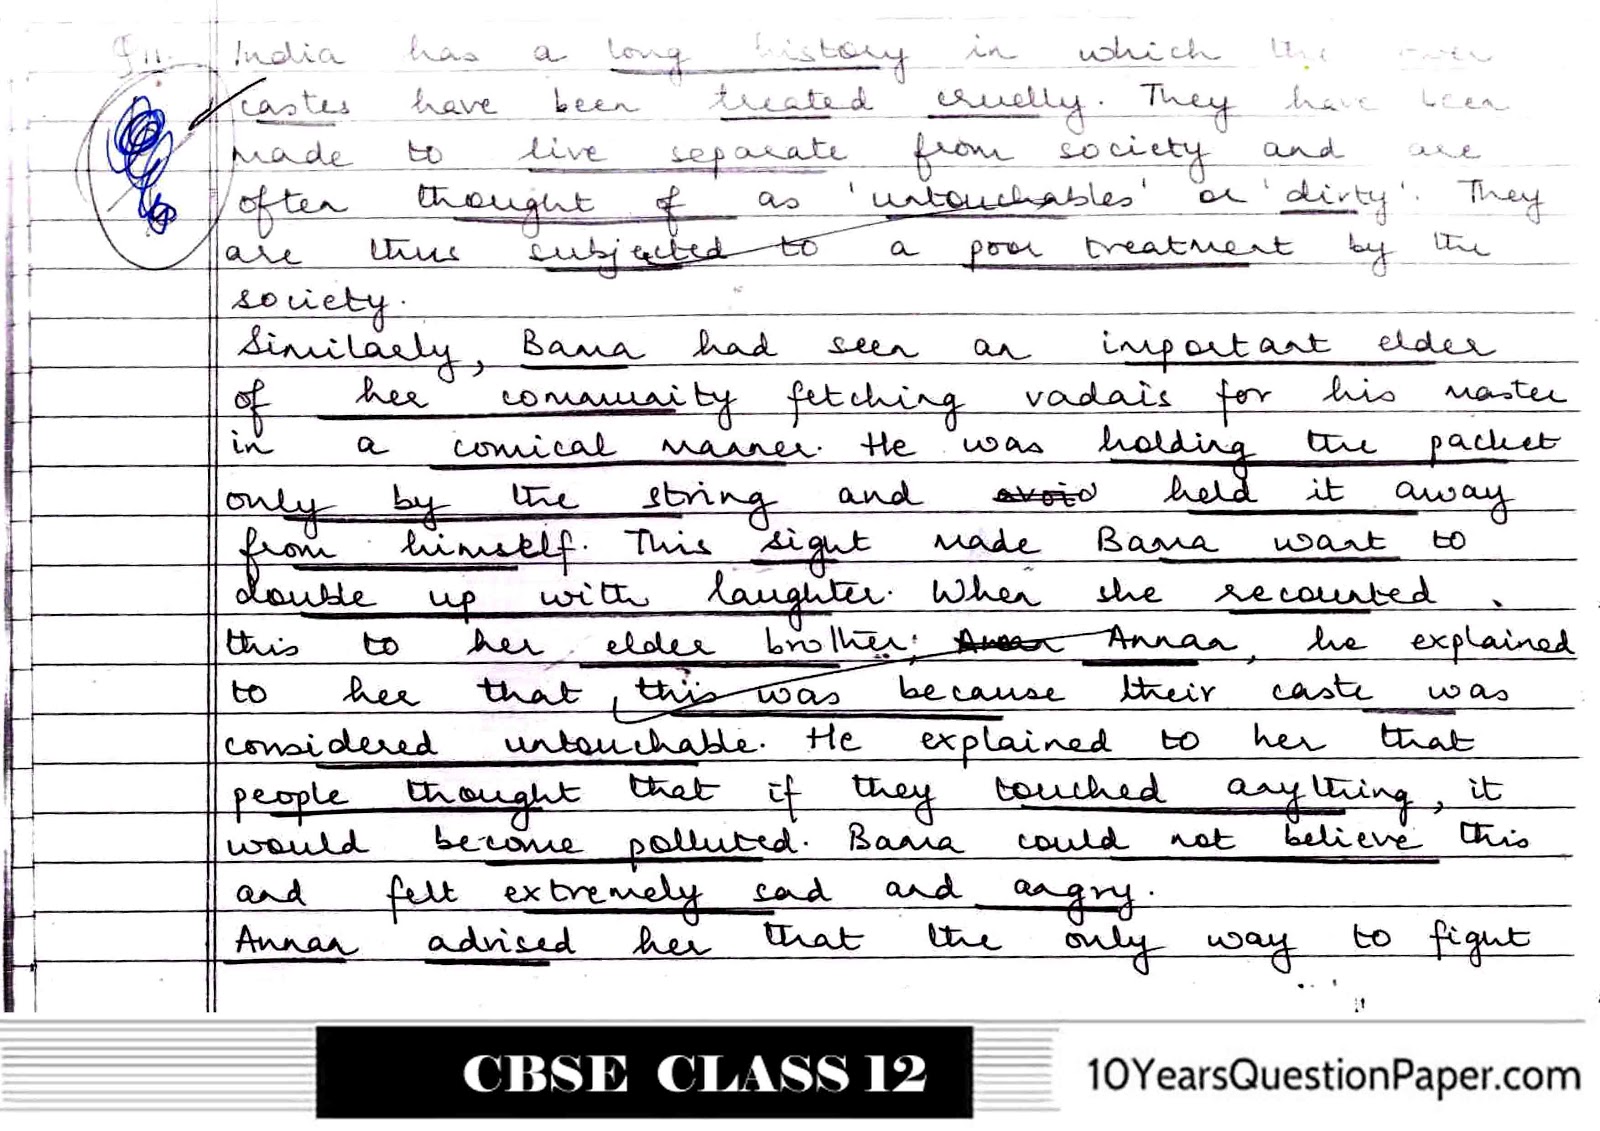 India has a long history in which the
castes have been treated cruelly. They have been
made to live separate from society and are
often thought of as 'untouchables' or 'dirty'. They
are thus subjected to a poor treatment by the
society.
Similarly, Bama had seen an important elder
of her community fetching vadais for his master
in a comical manner. He was holding the packet
only by the string and avoid held it away
from himself. This sight made Bama want to
double up with laughter. When she recounted
this to her elder brother, Annan Annan, he explained
to her that, this was because their caste was
considered untouchable. He explained to her that
people thought that if they touched anything, it
would become polluted. Bama could not believe this
and felt extremely sad and angry.
Annan advised her that the only way to fight
CBSE CLASS 12
10YearsQuestionPaper.com